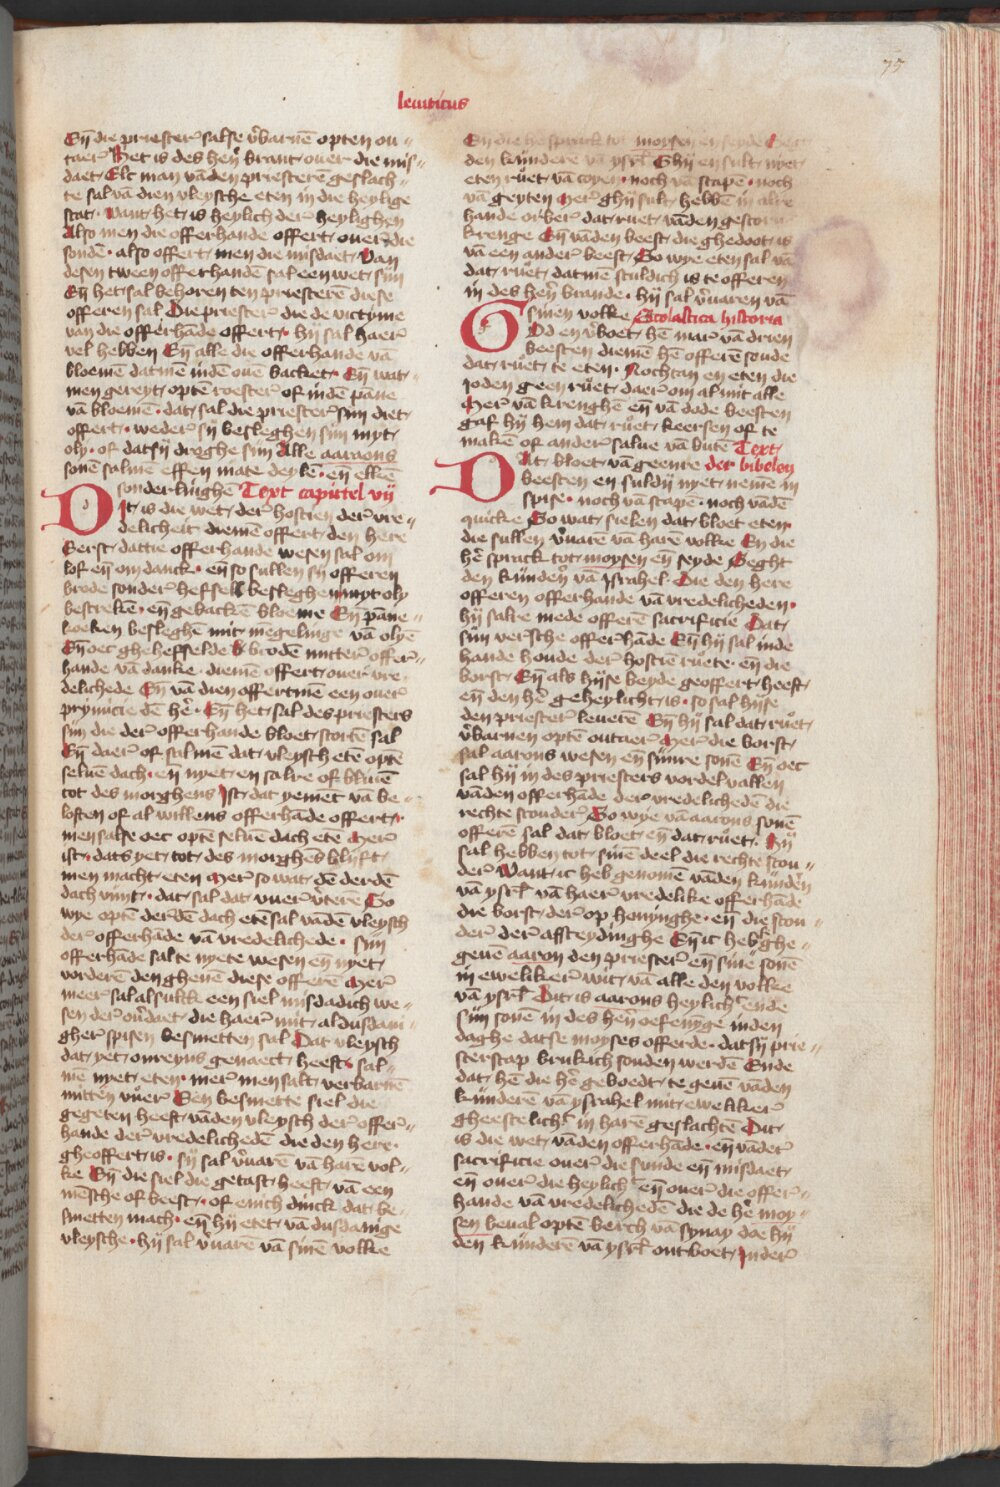 75
leuiticus
Eñ die priester salse v̄barnē opten ou-
taer Het is des hen̄ brant ouer die mis-
daet Elc man vādēn priesterē geslach-
te sal vā dien vleysche eten in die heylige
stat · want het is heylich der heylighen
Also men die offerhande offert ouer die
sondē · also offert men die misdaet Van
desen tween offerhandē sal een wet sijn
Eñ het sal behoren ten priesterē diese
offeren sal Die priester die de victyme
van die offerhāde offert · hij sal haer
vel hebben Eñ alle die offerhande vā
bloemē datmē indē ouē backet · Eñ wat
men gereyt optē roester of indē pāne
vā bloemē · dat sal die priester sijn diet
offert · weder sij besleghen sijn myt
oly · of datsij droghe sijn Alle aarons
sonē salmē effen mate deylē · eñ elkē
sonderlinghē Text capittel vij
Dit is die wet der hostien der vre-
delicheit diemē offert den here
Eerst dattie offerhande wesen sal om
lof eñ om danck · eñ so sullen sij offeren
brode sonder heffsell besleghen myt oly
bestrekē · eñ gebackē bloeme Eñ pāne-
koeken besleghē mit mēgelinge vā olyē
Eñ oec gheheffelde brodē mitter offer-
hande vā danke · diemē offert ouer vre-
delichede Eñ vā dien offertmē een ouer
prymicie dē hē · Eñ het sal des priesters
sijn die der offerhande bloet storten sal
Eñ daer of salmē dat vleysch etē optē
seluē dach · eñ nyet en salre of bliuē
tot des morghens Ist dat yemēt vā be-
loften of al willens offerhāde offert ·
men salse oec optē seluē dach etē Mer
ist dats yet tot des morghēs blijft
men macht eten Mer so wat dē derdē
dach vint · dat sal dat vuer v̄terē So
wye optē derdē dach etē sal vādē vleysch
der offerhāde vā vredelichede · sijn
offerhāde sal te nyete wesen eñ nyet
vorderē den gheuē diese offerē Mer
meer sal alsulck een siel misdadich we-
sen der ou̅daet die haer mit al dusdani-
gher spisen besmetten sal Dat vleysch
dat yet onreyns genaect heeft · sal-
mē nyet eten · mer men salt verbarnē
mittē vuer Een besmette siel die
gegeten heeft vādēn vleysch der offer-
hande der vredelichedē die den here
gheoffert is · sij sal v̄uarē vā harē vol-
ke Eñ die siel die getast heeft vā een
mēsche of beest · of enich dinck dat be-
smetten mach · eñ hij etet vā dusdanige
vleysche · hij sal v̄uarē vā sinē volke
Eñ die he sprack tot moysen en seyde
den kindere vā ysrl Ghij en sult nyet
eten ruet vā coyen · noch vā scapē · noch
vā geyten Mer ghij sult hebbē in
hande orber dat ruet vādēn
krenge Eñ vādēn beest die ghedoot is
vā een ander beest So wye eten sal vā
dat ruet datmē sculdich is te offeren
in des hen̄ brande · hij sal v̄uaren vā
sinen volke Scolastica historia
God en v̄boet hē mar vā drien
beesten diemē hē offerē soude
dat ruet te eten · Nochtan en eten die
ioden geen ruet daer om al mit alle
Mer vā krenghē eñ vā dode beesten
gaf hij hem dat ruet keersen of te
makē of ander salue vā butē Text
Dat bloet vā geenre der bibelen
beesten en suldij nyet nemē in
spise · noch vā scapē · noch vādē
quicke So wat sielen dat bloet eten
die sullen v̄uarē vā harē volke En die
hē sprack tot moysen eñ seyde Seght
den kinderē vā Israhel · Die den here
offeren offerhande vā vredelicheden ·
hij salre mede offerē sacrificie Dat
sijn versche offerhāde Eñ hij sal inde
hande houde der hostiē ruete · eñ die
borst · Eñ als hijse beyde geoffert heeft
eñ den hē geheylicht is · so sal hijse
den priester leuerē Eñ hij sal dat ruet
v̄barnen optē outaer Mer die borst
sal aarons wesen eñ sijnre sonē Eñ oec
sal hij in des priesters vordel vallen
vāden offerhāde der vredelichedē die
rechte scouder So wye vā aarons sonē
offerē sal dat bloet eñ dat ruet · Hij
sal hebben tot sinē deel die rechte scou-
der Want ic heb genomē vādēn kinderē
vā ysrl vā haer vredelike offerhāde
die borst der op heuynghe · eñ die scou-
der der affsceydinghe Eñ ic heb ghe-
geuē aaron den priester eñ sinē sonē
in eweliker wit vā alle den volke
vā ysrl Dit is aarons heylich ende
sijn sonē in des hen̄ oefenyge inden
daghe datse moyses offerde · datsij prie-
sterscap brukich souden werdē Ende
dat hē die hē geboedt te geuē vādēn
kinderē vā ysrahel mit eweliker
gheestelich in harē geslachtē Dit
is die wet vādēn offerhāde · eñ vāder
sacrificie ouer die sunde eñ misdaet
eñ ouer die heylich eñ ouer die offer-
hande vā vredelichedē die de hē moy-
sen beual optē berch vā synay doe hij
den kinderē vā ysrl ontboet Inder